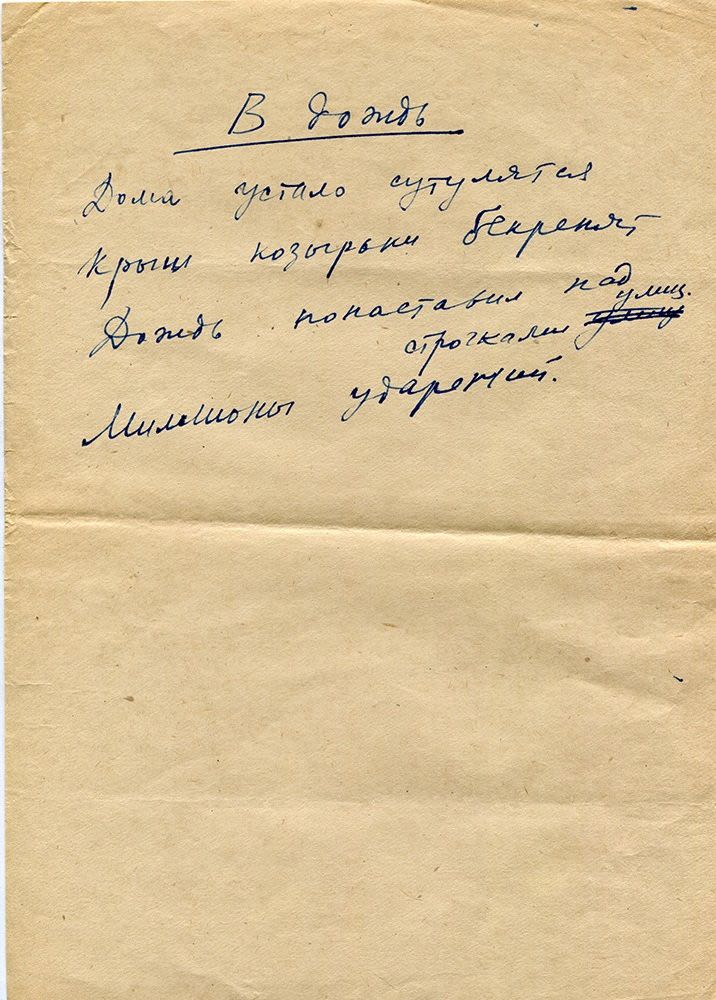 В дождь
Дома устало сутулятся
Крыш козырьки бекренят
Дождь понаставил над
строчками улиц.
Миллионы ударений.